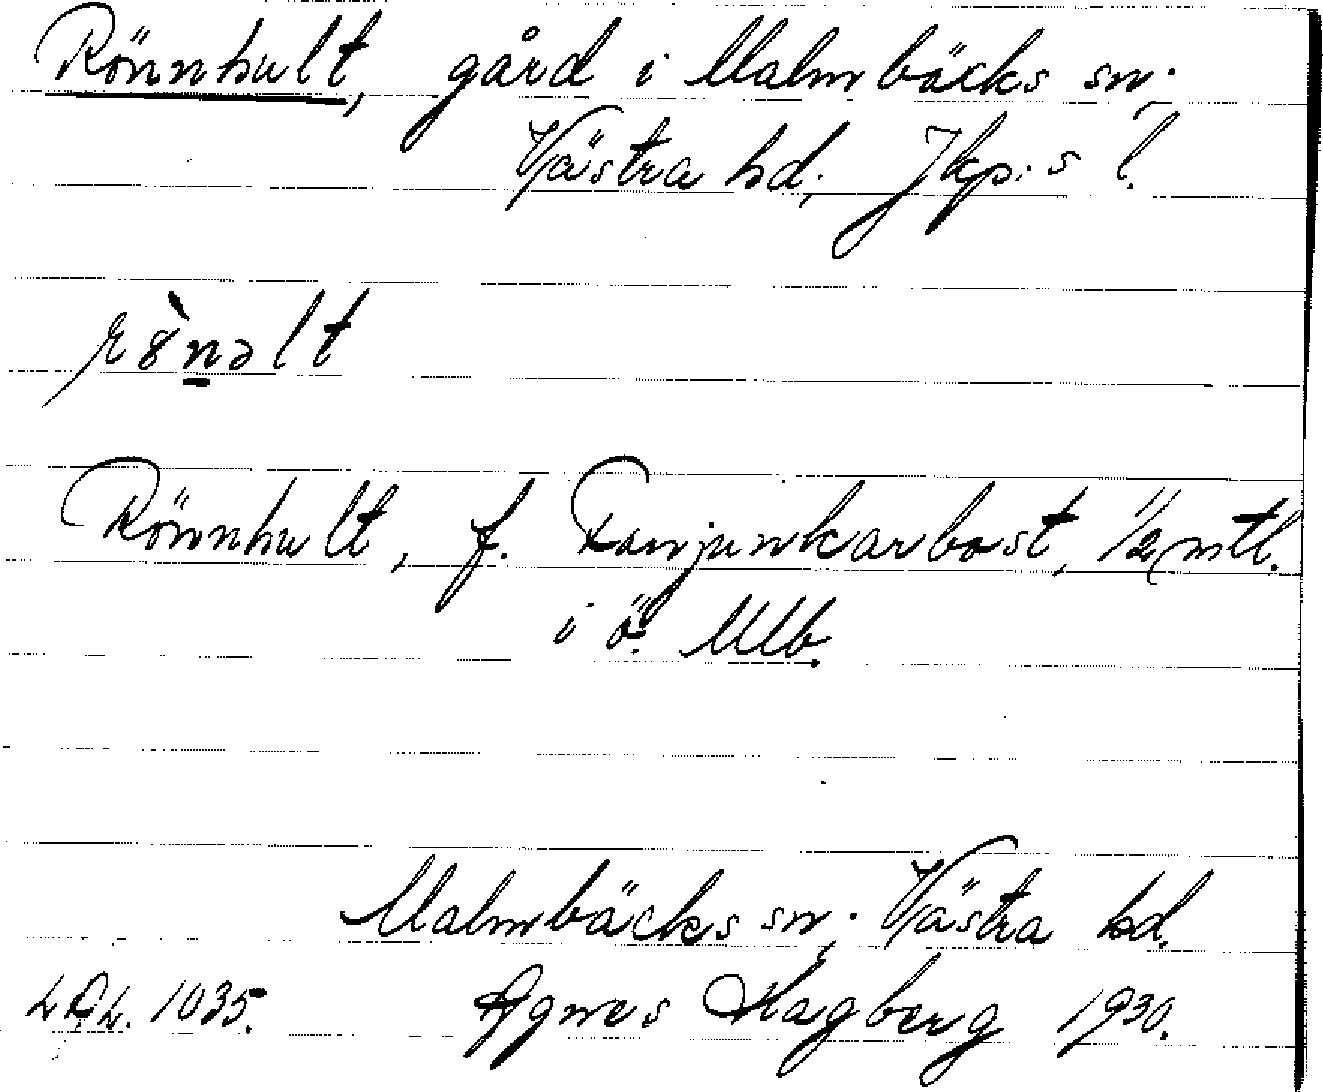 Rönnhult, gård i Malmbäcks sn;
Västra hd; Jkp:s l.
Rönnhult, f. Fanjunkarbost, 1/2 mtl.
i ö. Mlb.
Malmbäcks sn; Västra hd.
1035. Agnes Hagberg 1930.